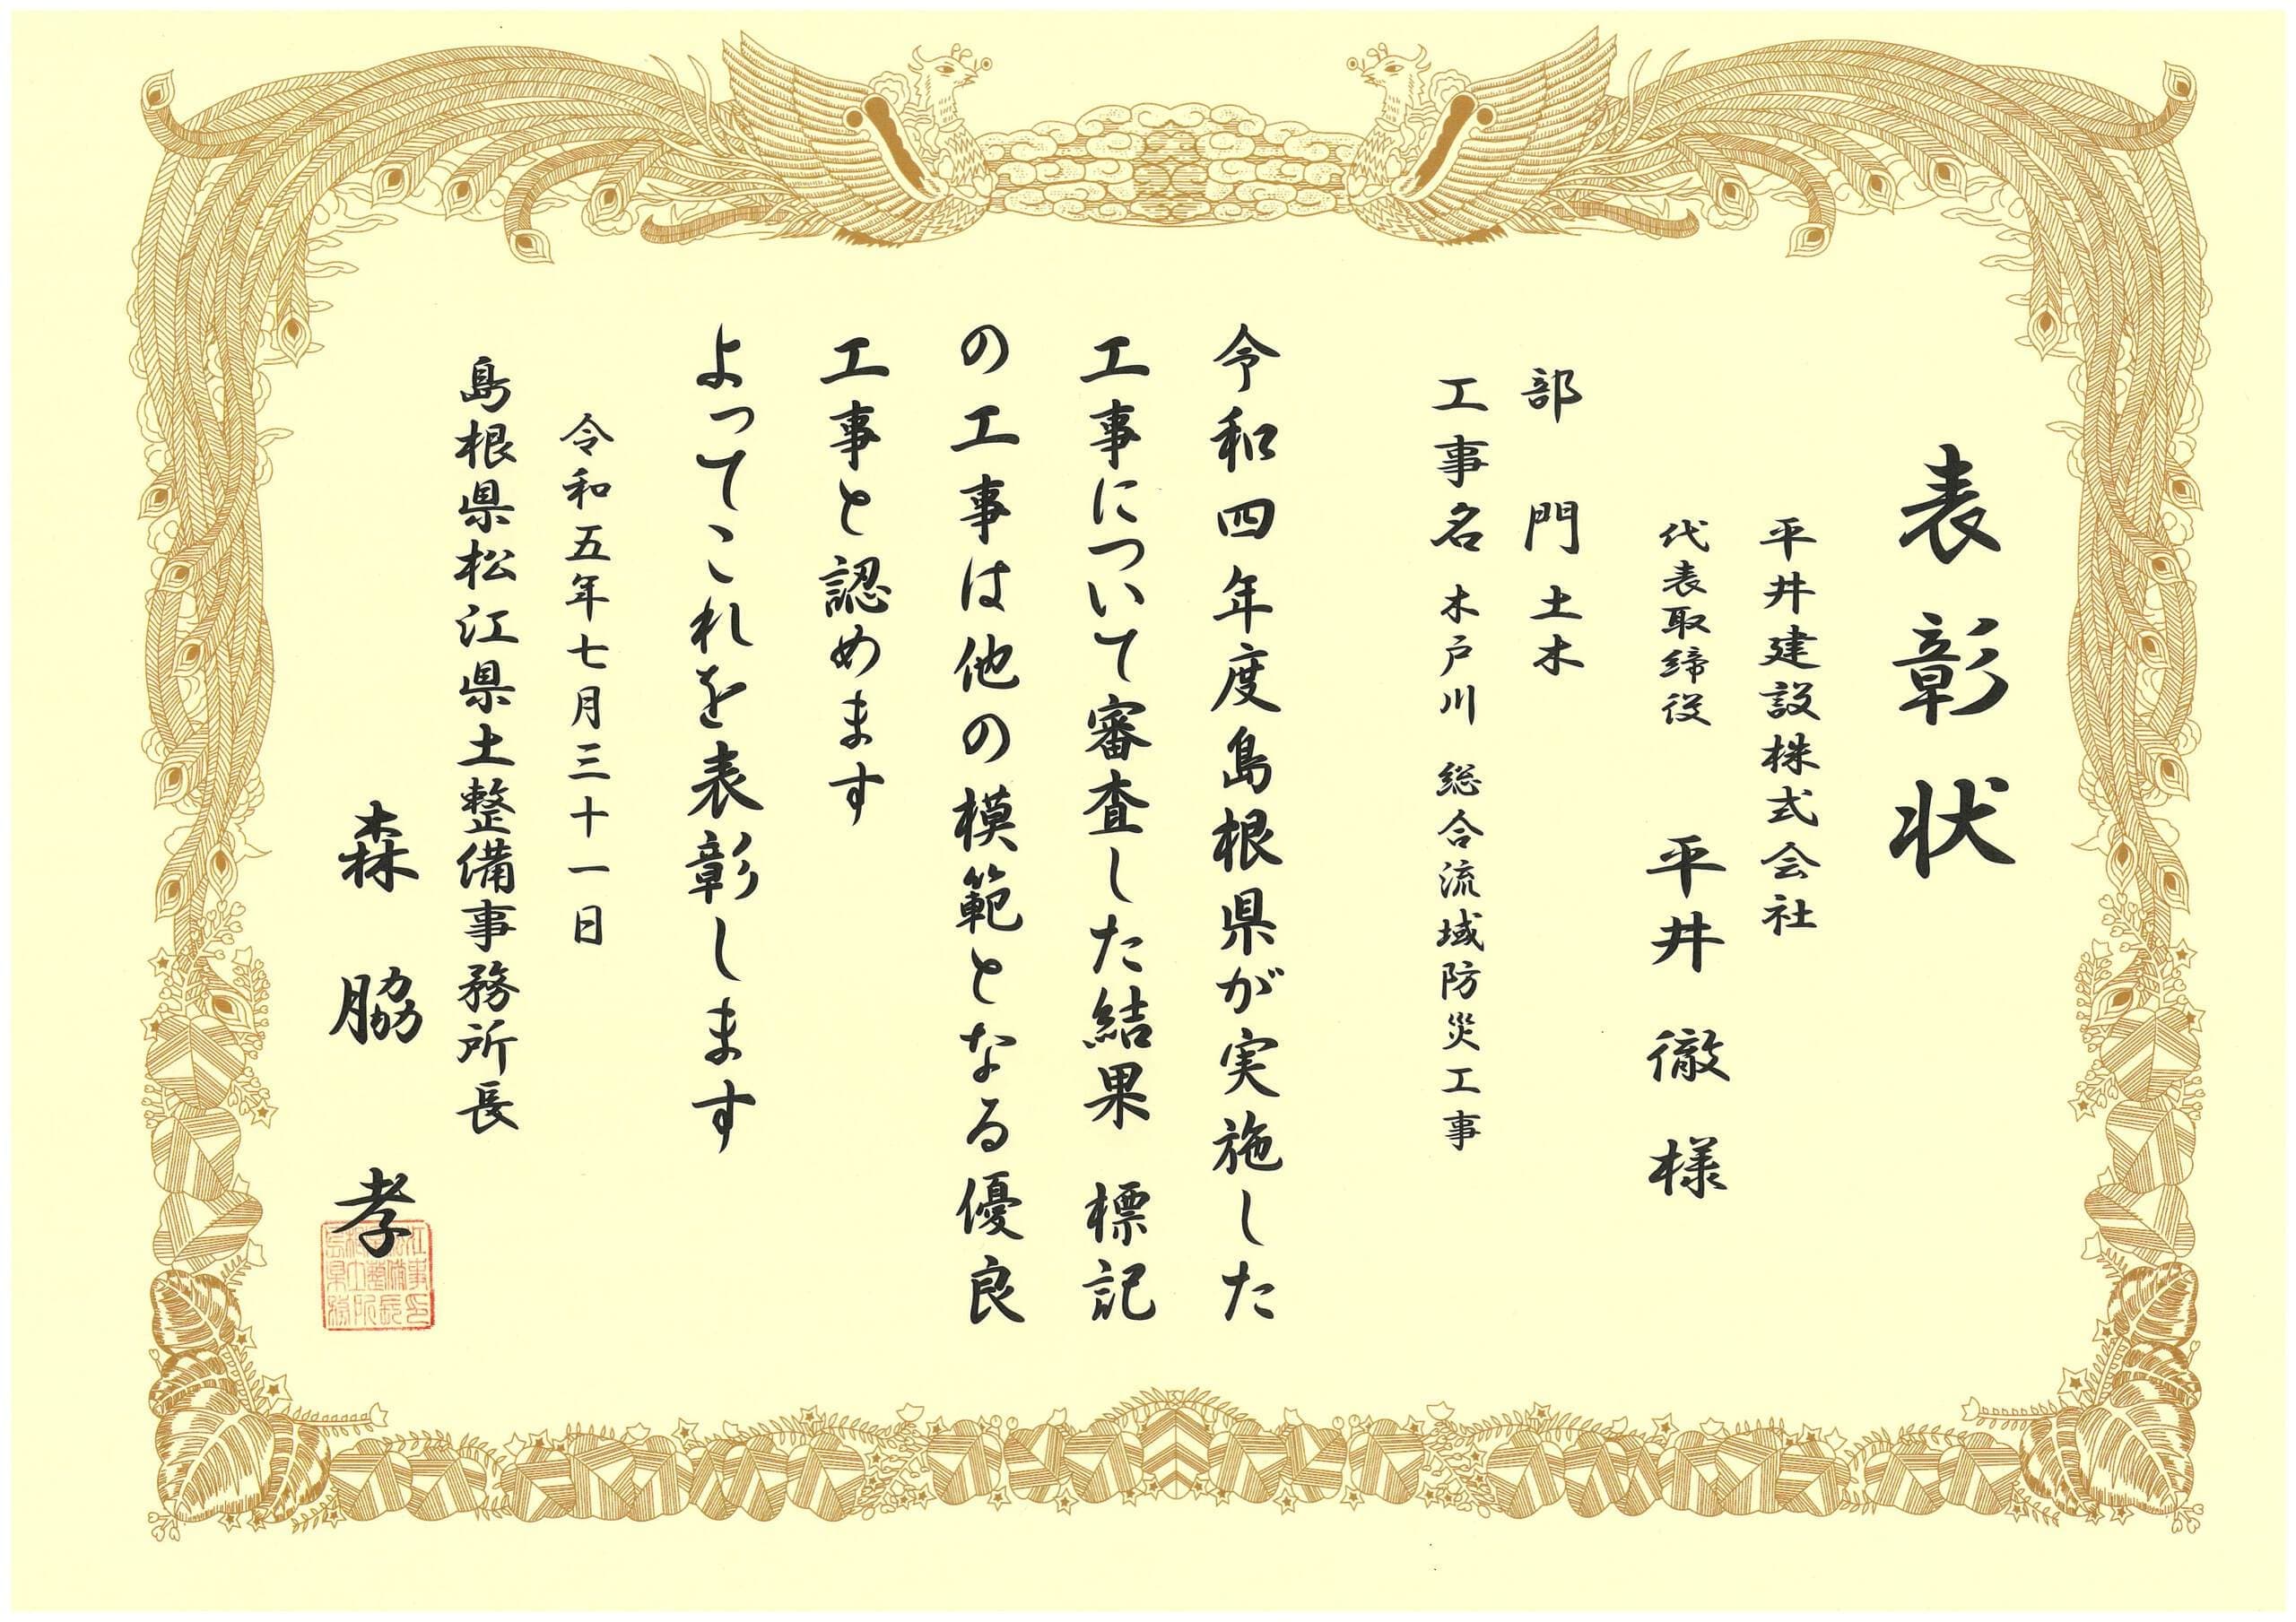 表彰状
平井建設株式会社
代表取締役 平井 徹 様
部 門 土木
工事名 木戸川 総合流域防災工事
令和四年度島根県が実施した
工事について審査した結果 標記
の工事は他の模範となる優良
工事と認めます
よってこれを表彰します
令和五年七月三十一日
島根県松江県土整備事務所長
森 脇 孝